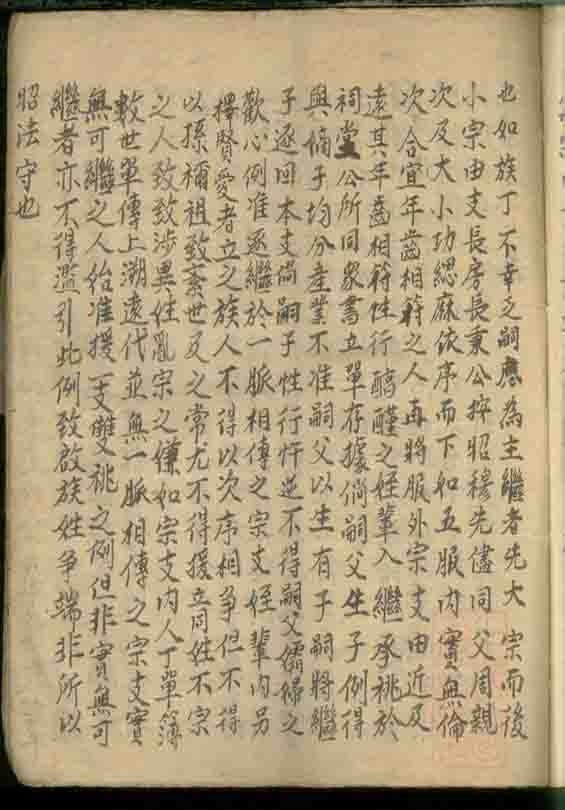 也如族丁不幸乏嗣應為主繼者先大宗而後
小宗由支長房長秉公按昭穆先儘同父周親
次及大小功緦麻依序而下如五服內實無倫
次合宜年齒相符之人再將服外宗支由近及
遠其年齒相符性行醇謹之姪輩入繼承祧於
祠堂公所同衆書立單存據倘嗣父生子例得
與備子均分產業不准嗣父以生有子嗣將繼
子逐回本支尚嗣子性行忤逆不得嗣父孀婦之
歡心例准逐繼於一脈相傳之宗支姪輩內另
擇賢愛者立之族人不得以次序相爭但不得
以孫禰祖致紊世及之常尤不得援立同姓不宗
之人致致涉異姓亂宗之嫌如宗支內人丁單薄
數世單傳上溯遠代並無一脈相傳之宗支實
無可繼之人始准援一支雙祧之例但非實無可
繼者亦不得濫引此例致啟族姓爭端非所以
昭法守也